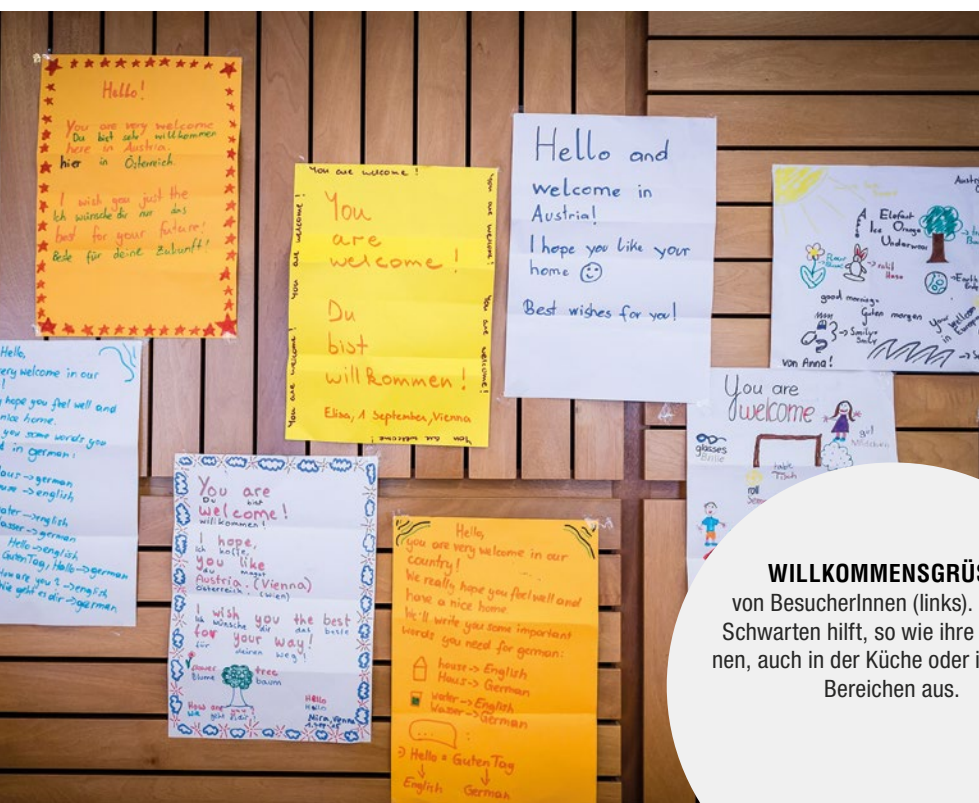 Hello!
You are very welcome
Du bist sehr willkommen
here in Austria.
hier in Österreich.
I wish you just the
Ich wünsche dir nur das
best for your future!
Beste für deine Zukunft!
You are welcome!
You are welcome!
You are welcome!
You are welcome!
You are welcome!
You are welcome!
You
are
welcome!
Du
bist
willkommen!
Elisa, 1 September, Vienna
You are welcome!
Hello and
welcome in
Austria!
I hope you like your
home
Best wishes for you!
Elefant
Ice Orange
Underwear
Hase
good morning
Guten morgen
von Anna!
Hello,
very welcome in our
hope you feel well and
nice home.
you some words you
in german:
Haus -> german
-> english
water -> english
wasser -> german
Hello -> english
Guten Tag, Hallo -> german
How are you? -> english
wie geht es dir -> german
You are
Du bist
welcome!
willkommen!
I hope,
Ich hoffe,
you like
du magst
Austria. (Vienna)
Österreich. (Wien)
I wish you the best
Ich wünsche dir das beste
for your way!
für deinen weg!
flower tree
Blume baum
How are you?
Wie geht es dir?
Hello
Hallo
Hello,
you are very welcome in our
country!
We really hope you feel well and
have a nice home.
We'll write you some important
words you need for german:
house -> English
Haus -> German
water -> English
Wasser -> German
Hello = Guten Tag
English German
You are
welcome
glasses
Brille
girl
Mädchen
table
Tisch
WILLKOMMENSGRÜS
von BesucherInnen (links).
Schwarten hilft, so wie ihre
nen, auch in der Küche oder i
Bereichen aus.